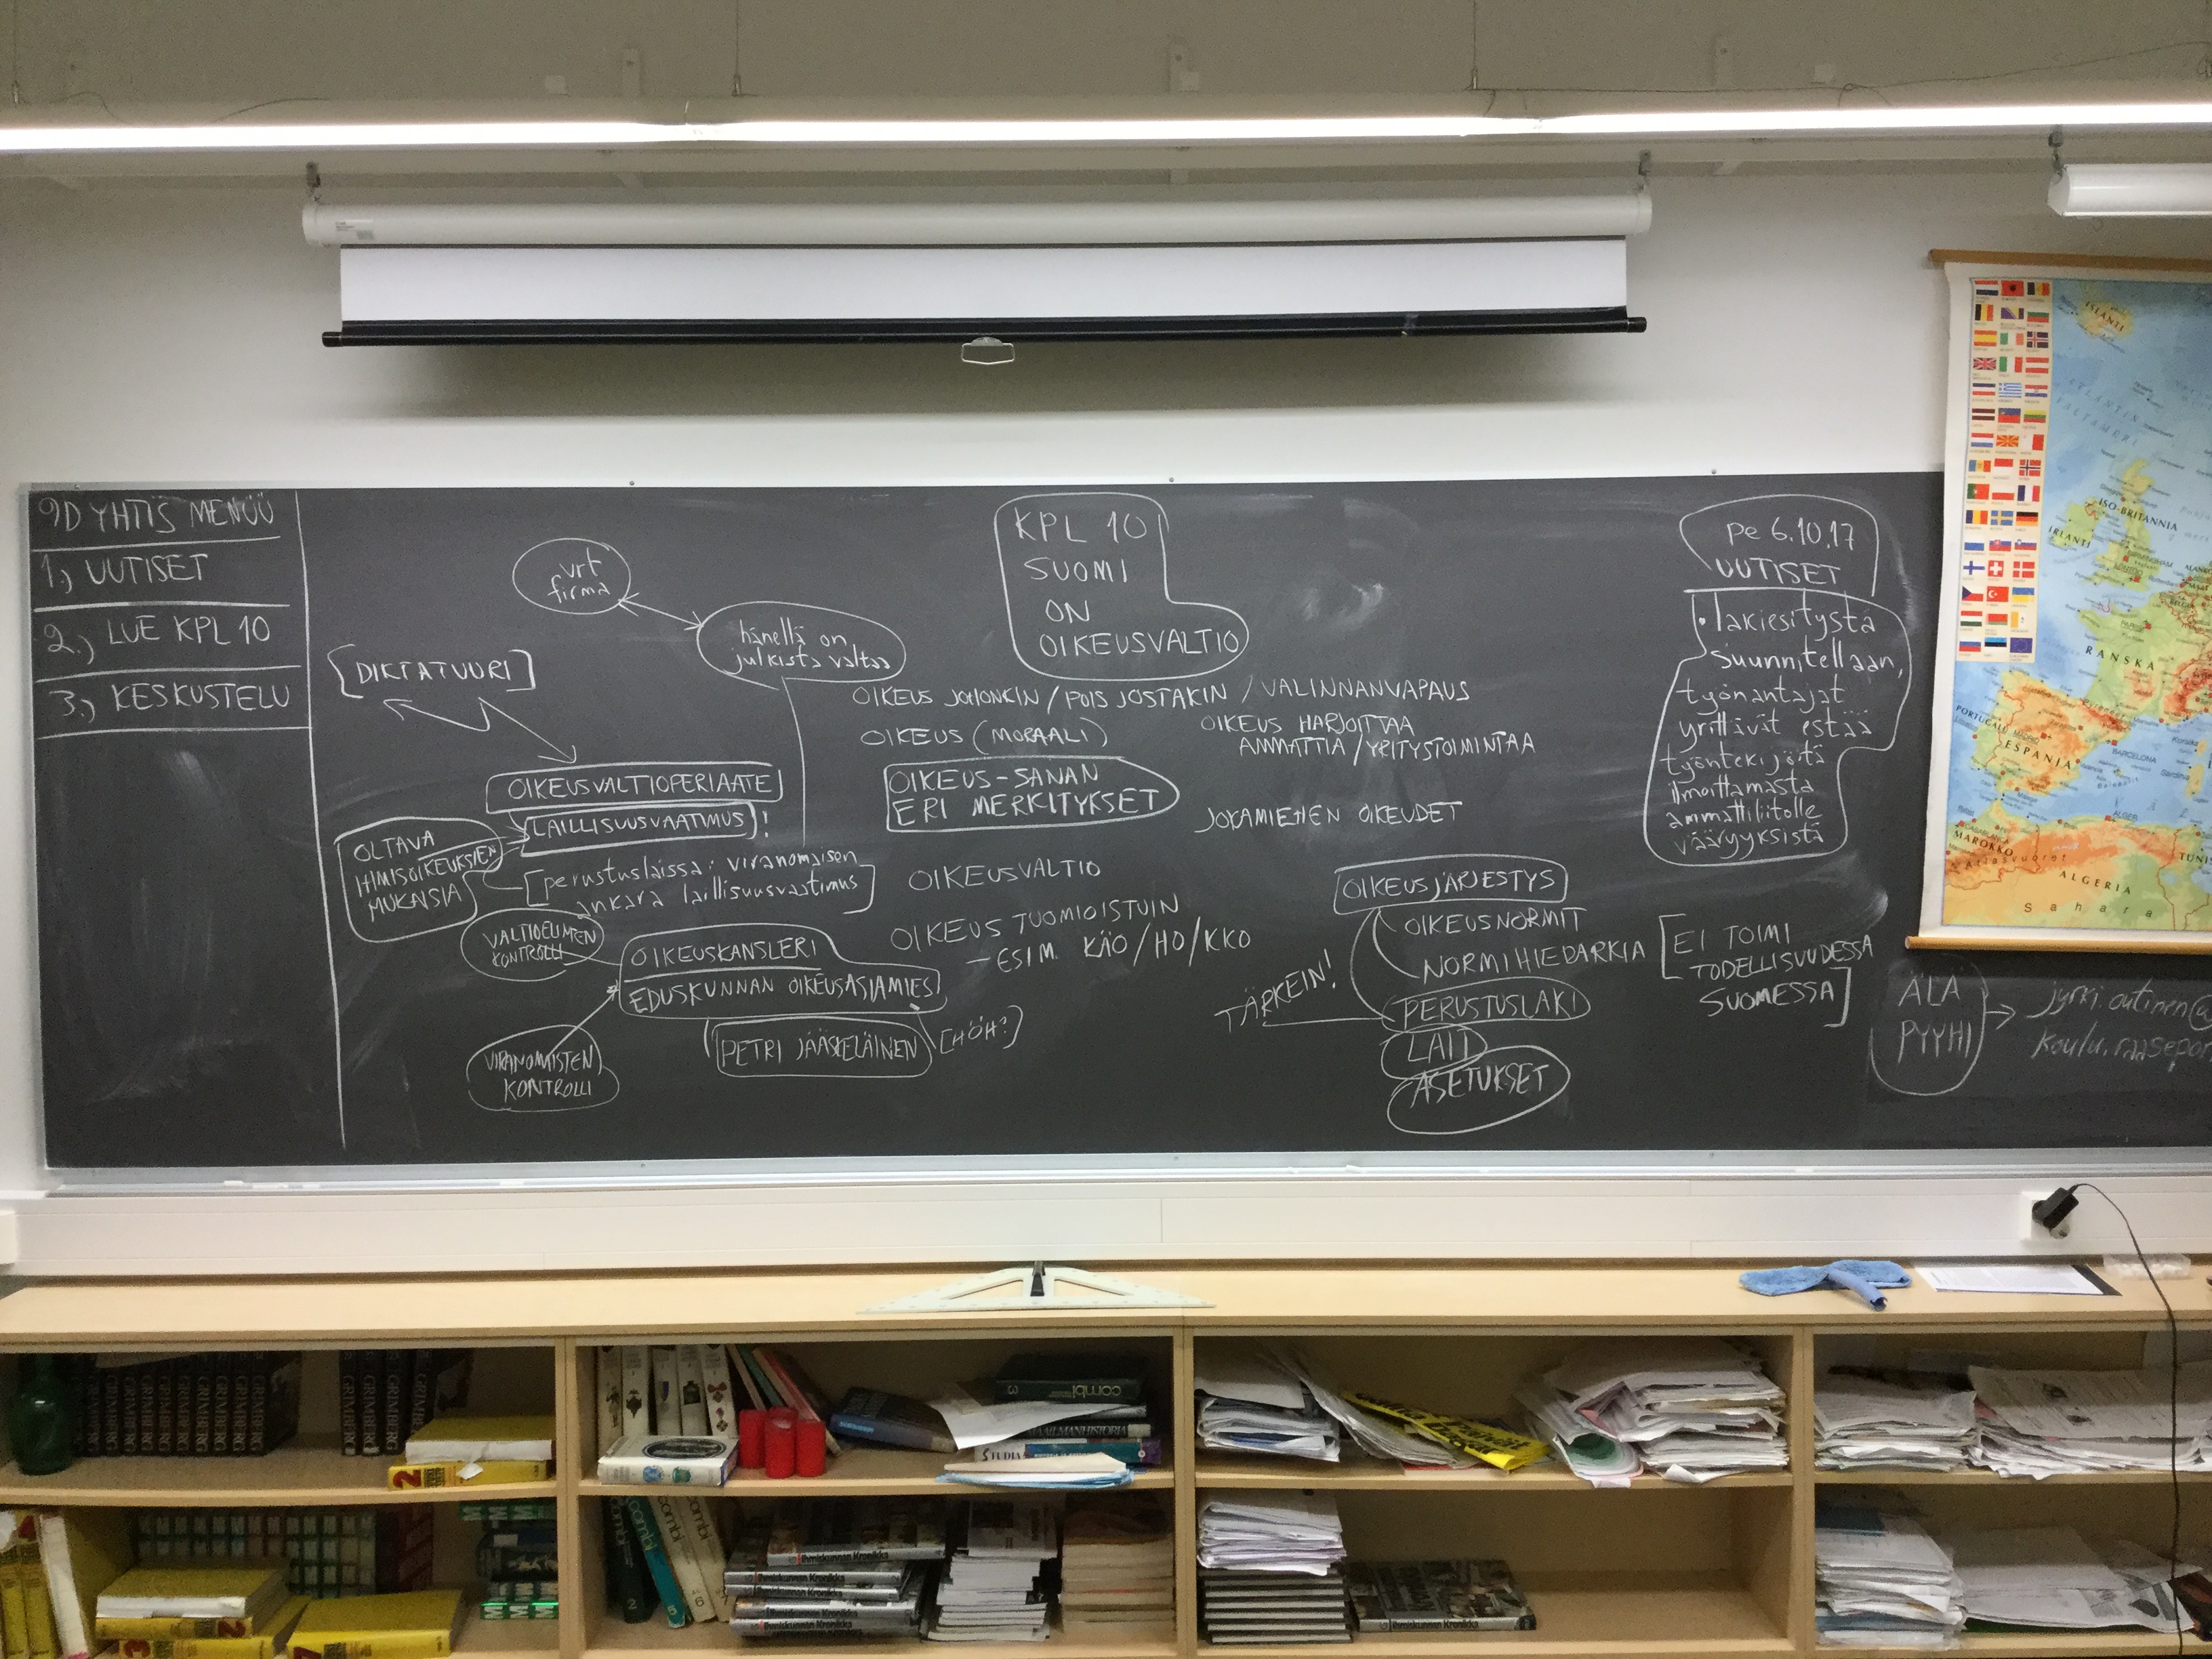 9D YHTIS MENÜÜ
1.) UUTISET
2.) LUE KPL 10
3.) KESKUSTELU
vrt
firma
hänellä on
julkista valtaa
[DIKTATUURI]
OIKEUSVALTIOPERIAATE
LAILLISUUSVAATIMUS!
OLTAVA
IHMISOIKEUKSIEN
MUKAISIA
[perustuslaissa: viranomaisen
ankara laillisuusvaatimus]
OIKEUSKANSLERI
EDUSKUNNAN OIKEUSASIAMIES
KONTROLLI
VIRANOMAISTEN
KONTROLLI
PETRI JÄÄSKELÄINEN
[HÖH?]
KPL 10
SUOMI
ON
OIKEUSVALTIO
OIKEUS JOHONKIN / POIS JOSTAKIN / VALINNANVAPAUS
OIKEUS (MORAALI)
OIKEUS HARJOITTAA
AMMATTIA / YRITYSTOIMINTAA
OIKEUS-SANAN
ERI MERKITYKSET
JOKAMIEHEN OIKEUDET
OIKEUSVALTIO
OIKEUS TUOMIOISTUIN
- ESIM. KÄO / HO / KKO
OIKEUSJÄRJESTYS
OIKEUSNORMIT
NORMIHIERARKIA
[EI TOIMI
TODELLISUUDESSA
SUOMESSA]
TÄRKEIN!
PERUSTUSLAKI
LAIT
ASETUKSET
pe 6.10.17
UUTISET
• lakiesitystä
suunnitellaan,
työnantajat
yrittävät estää
työntekijöitä
ilmoittamasta
ammattiliitolle
vääryyksistä
ÄLÄ
PYYHI
jyrki.outinen@
koulu.raasepor
ISLANTI
ISO-BRITANNIA
IRLANTI
RANSKA
PORTUGALI
ESPANJA
MAROKKO
ALGERIA
Sahara
GRIMBERG
combi
MAAILMANHISTORIA
STUDIA
Ihmiskunnan Kronikka